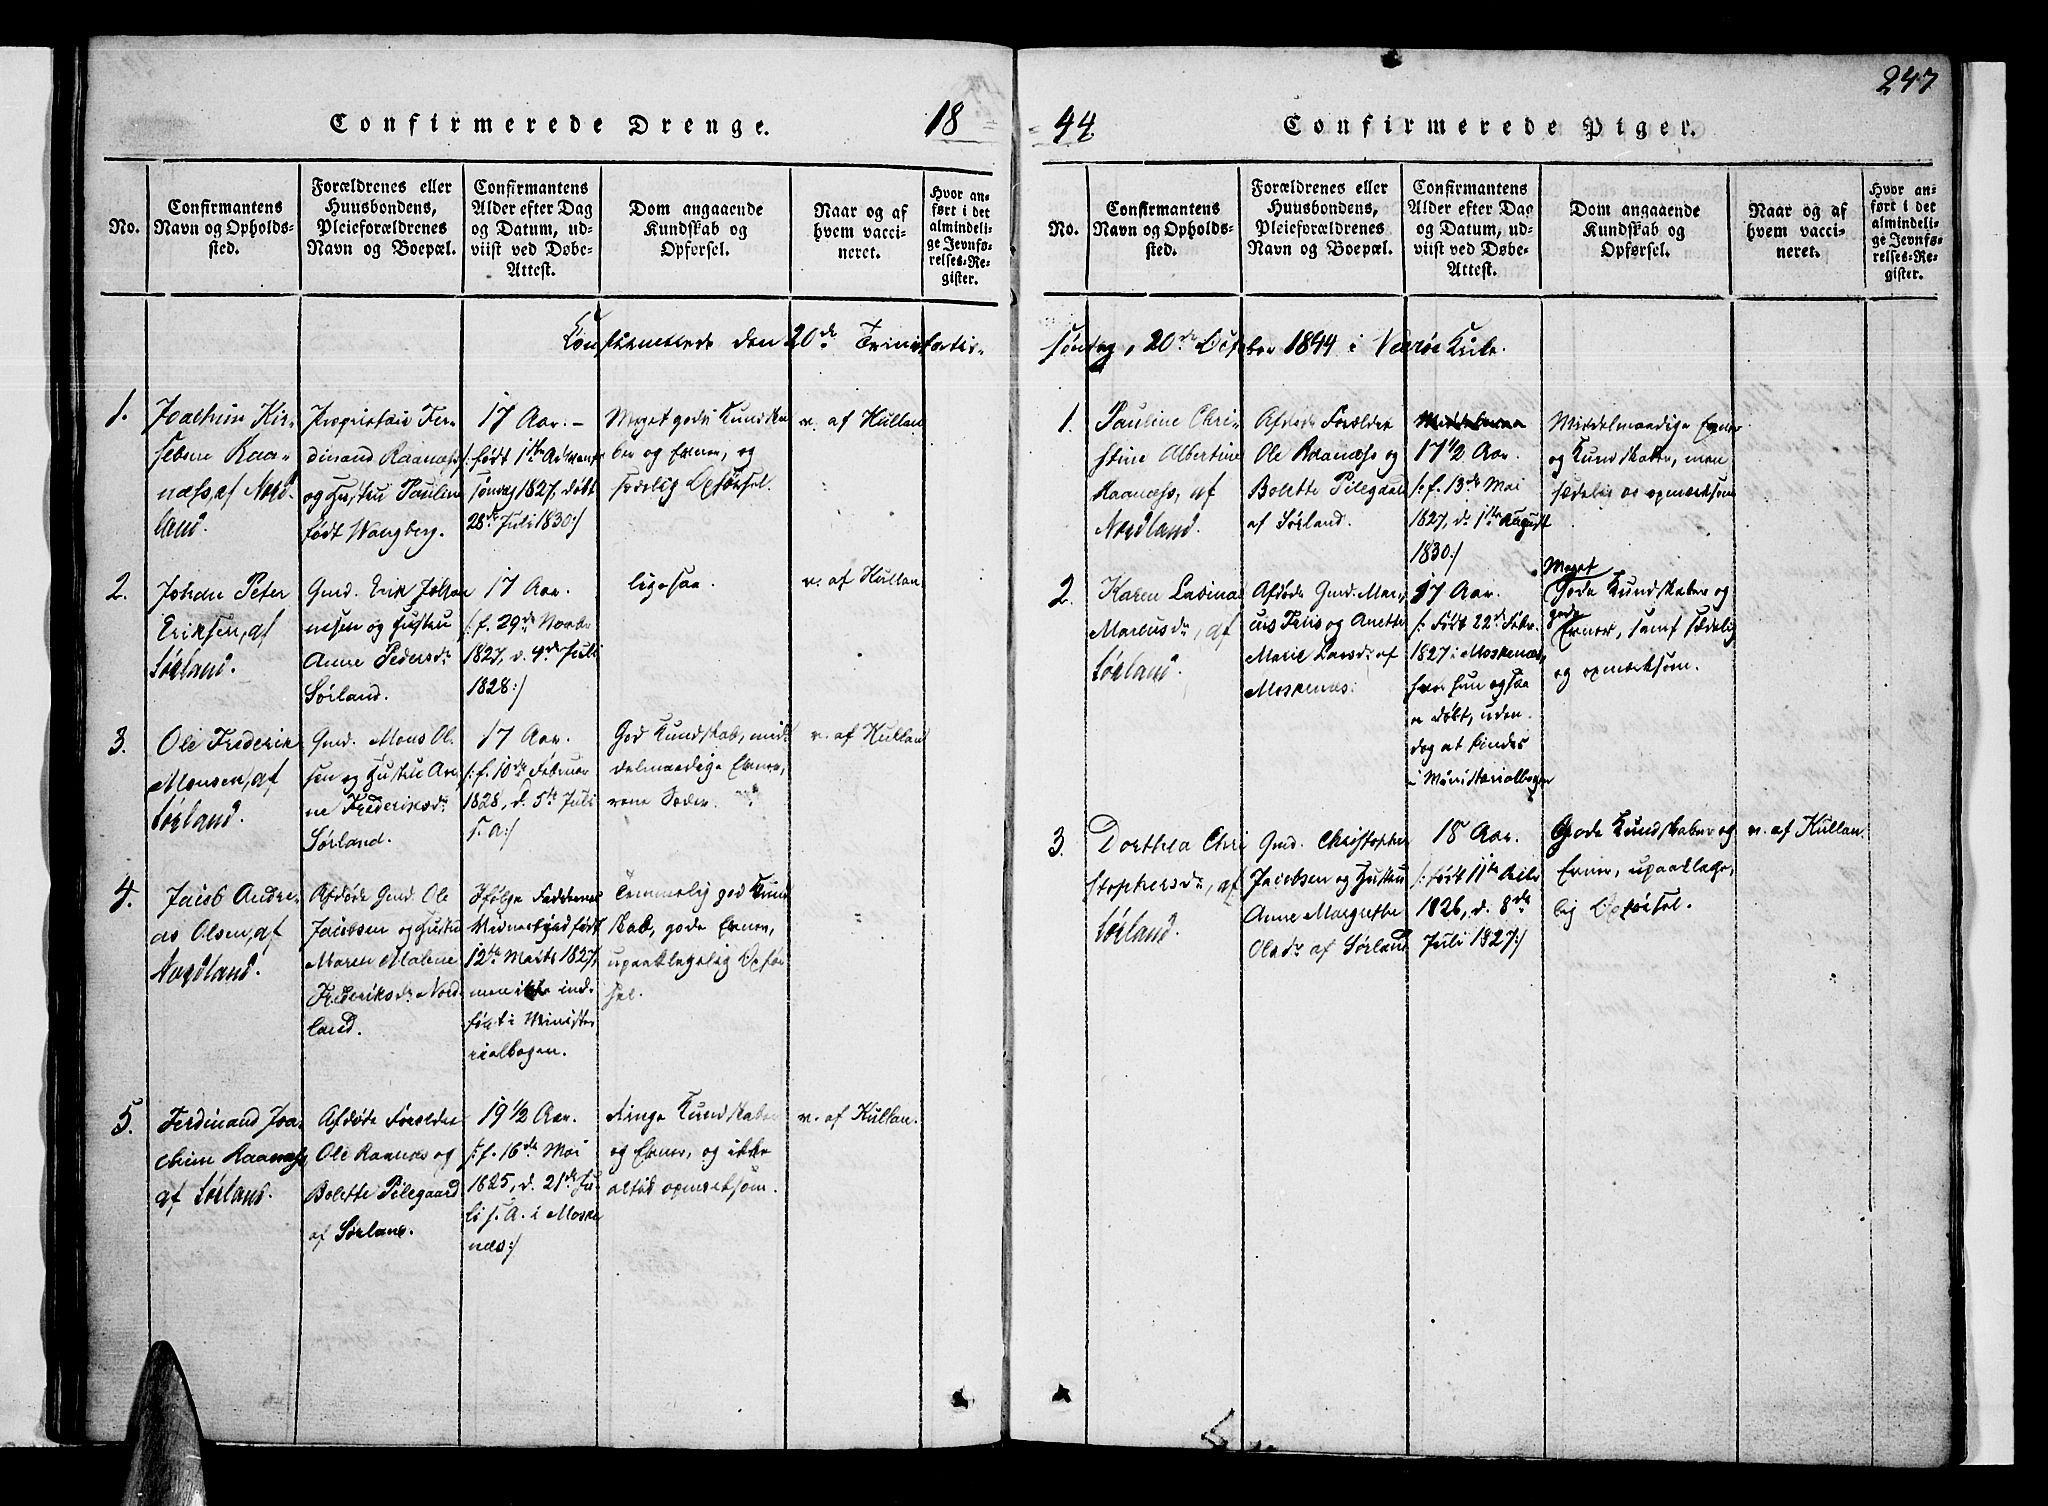 247
Confirmerede Drenge.
18
No.
Confirmantens Navn og Opholds-sted.
Forældrenes eller Huusbondens, Pleieforældrenes Navn og Boepæl.
Confirmantens Alder efter Dag og Datum, ud-viist ved Døbe-Attest.
Dom angaaende Kundskab og Opførsel.
Naar og af hvem vacci-neret.
Hvor an-ført i det almindeli-ge Jevnfø-relses-Re-gister.
Confirmerede den 20de Trinitatis-
1.
Joachim Kir-
sebom Raa-
næss, af Nord-
land.
Proprietair Fer-
dinand Raanæss
og Hustru Pauline
født Wangberg.
17 Aar. –
/: født 1ste Advents
søndag 1827, døbt
28de Juli 1830 :/
Meget gode Kundska-
ber og Evner, og
sædelig Opførsel.
v. af Kullan
2.
Johan Peter
Eriksen, af
Sørland.
Gmd. Erik Johan
nesen og Hustru
Anne Pedersdr.
Sørland.
17 Aar.
/: f. 29de Novbr.
1827, d. 4de Juli
1828 :/
ligesaa.
v. af Kullan
3.
Ole Frederik
Monsen, af
Sørland.
Gmd. Mons Ol-
sen og Hustru An-
ne Frederiksdr.
Sørland.
17 Aar.
/: f. 10de Februar
1828, d. 5te Juli
s. A :/
God Kundskab, mid-
delmaadige Evner,
rene Sæder.
v. af Kullan
4.
Jacob Andre-
as Olsen, af
Nordland.
Afdøde Gmd. Ole
Jacobsen og Hustru
Maren Malene
Frederiksdr. Nord-
land.
Ifølge Faddernes
Vidnesbyrd født
12te Marts 1827,
men ikke ind-
ført i Ministe
rialbogen.
Temmelig god Kund
skab, gode Evner,
upaaklagelig Opfør
sel.
5.
Ferdinand Joa-
chim Raanæss
af Sørland.
Afdøde Forældre
Ole Raanæs og
Bolette Pilegaard
af Sørland.
19 1/2 Aar.
/: f. 16de Mai
1825, d. 21de Ju-
li s. A. i Moske
næs :/
Ringe Kundskaber
og Evner, og ikke
altid opmærksom.
v. af Kullan.
44
Confirmerede Piger.
No.
Confirmantens Navn og Opholds-sted.
Forældrenes eller Huusbondens, Pleieforældrenes Navn og Boepæl.
Confirmantens Alder efter Dag og Datum, ud-viist ved Døbe-Attest.
Dom angaaende Kundskab og Opførsel.
Naar og af hvem vacci-neret.
Hvor an-ført i det almindeli-ge Jevnfø-relses-Re-gister.
søndag, 20de October 1844 i Værøe Kirke.
1.
Pauline Chri-
stine Albertine
Raanæss, af
Nordland.
Afdøde Forældre
Ole Raanæss og
Bolette Pilegaard
af Sørland.
17 1/2 Aar.
/: f. 13de Mai
1827, d. 1ste August
1830 :/
Middelmaadige Evner
og Kundskaber, men
sædelig og opmærksom
2.
Karen Lavina
Marcusdr., af
Sørland.
Afdøde Gmd. Mar-
cus Friis og Anette
Marie Larsdr. af
Moskenæs.
17 Aar.
/: født 22de Febr.
1827 i Moskenæs,
hvor hun ogsaa
er døbt, uden
dog at findes
i Ministerialbogen
Meget
Gode Kundskaber og
gode
Evner, samt sædelig
og opmærksom.
3.
Dorthea Chri
stophersdr., af
Sørland.
Gmd. Christopher
Jacobsen og Hustru
Anne Margrethe
Olsdr. af Sørland
18 Aar.
/: født 11te Oktbr
1826, d. 8de
Juli 1827 :/
Gode Kundskaber og
Evner, upaaklage-
lig Opførsel.
v. af Kullan.